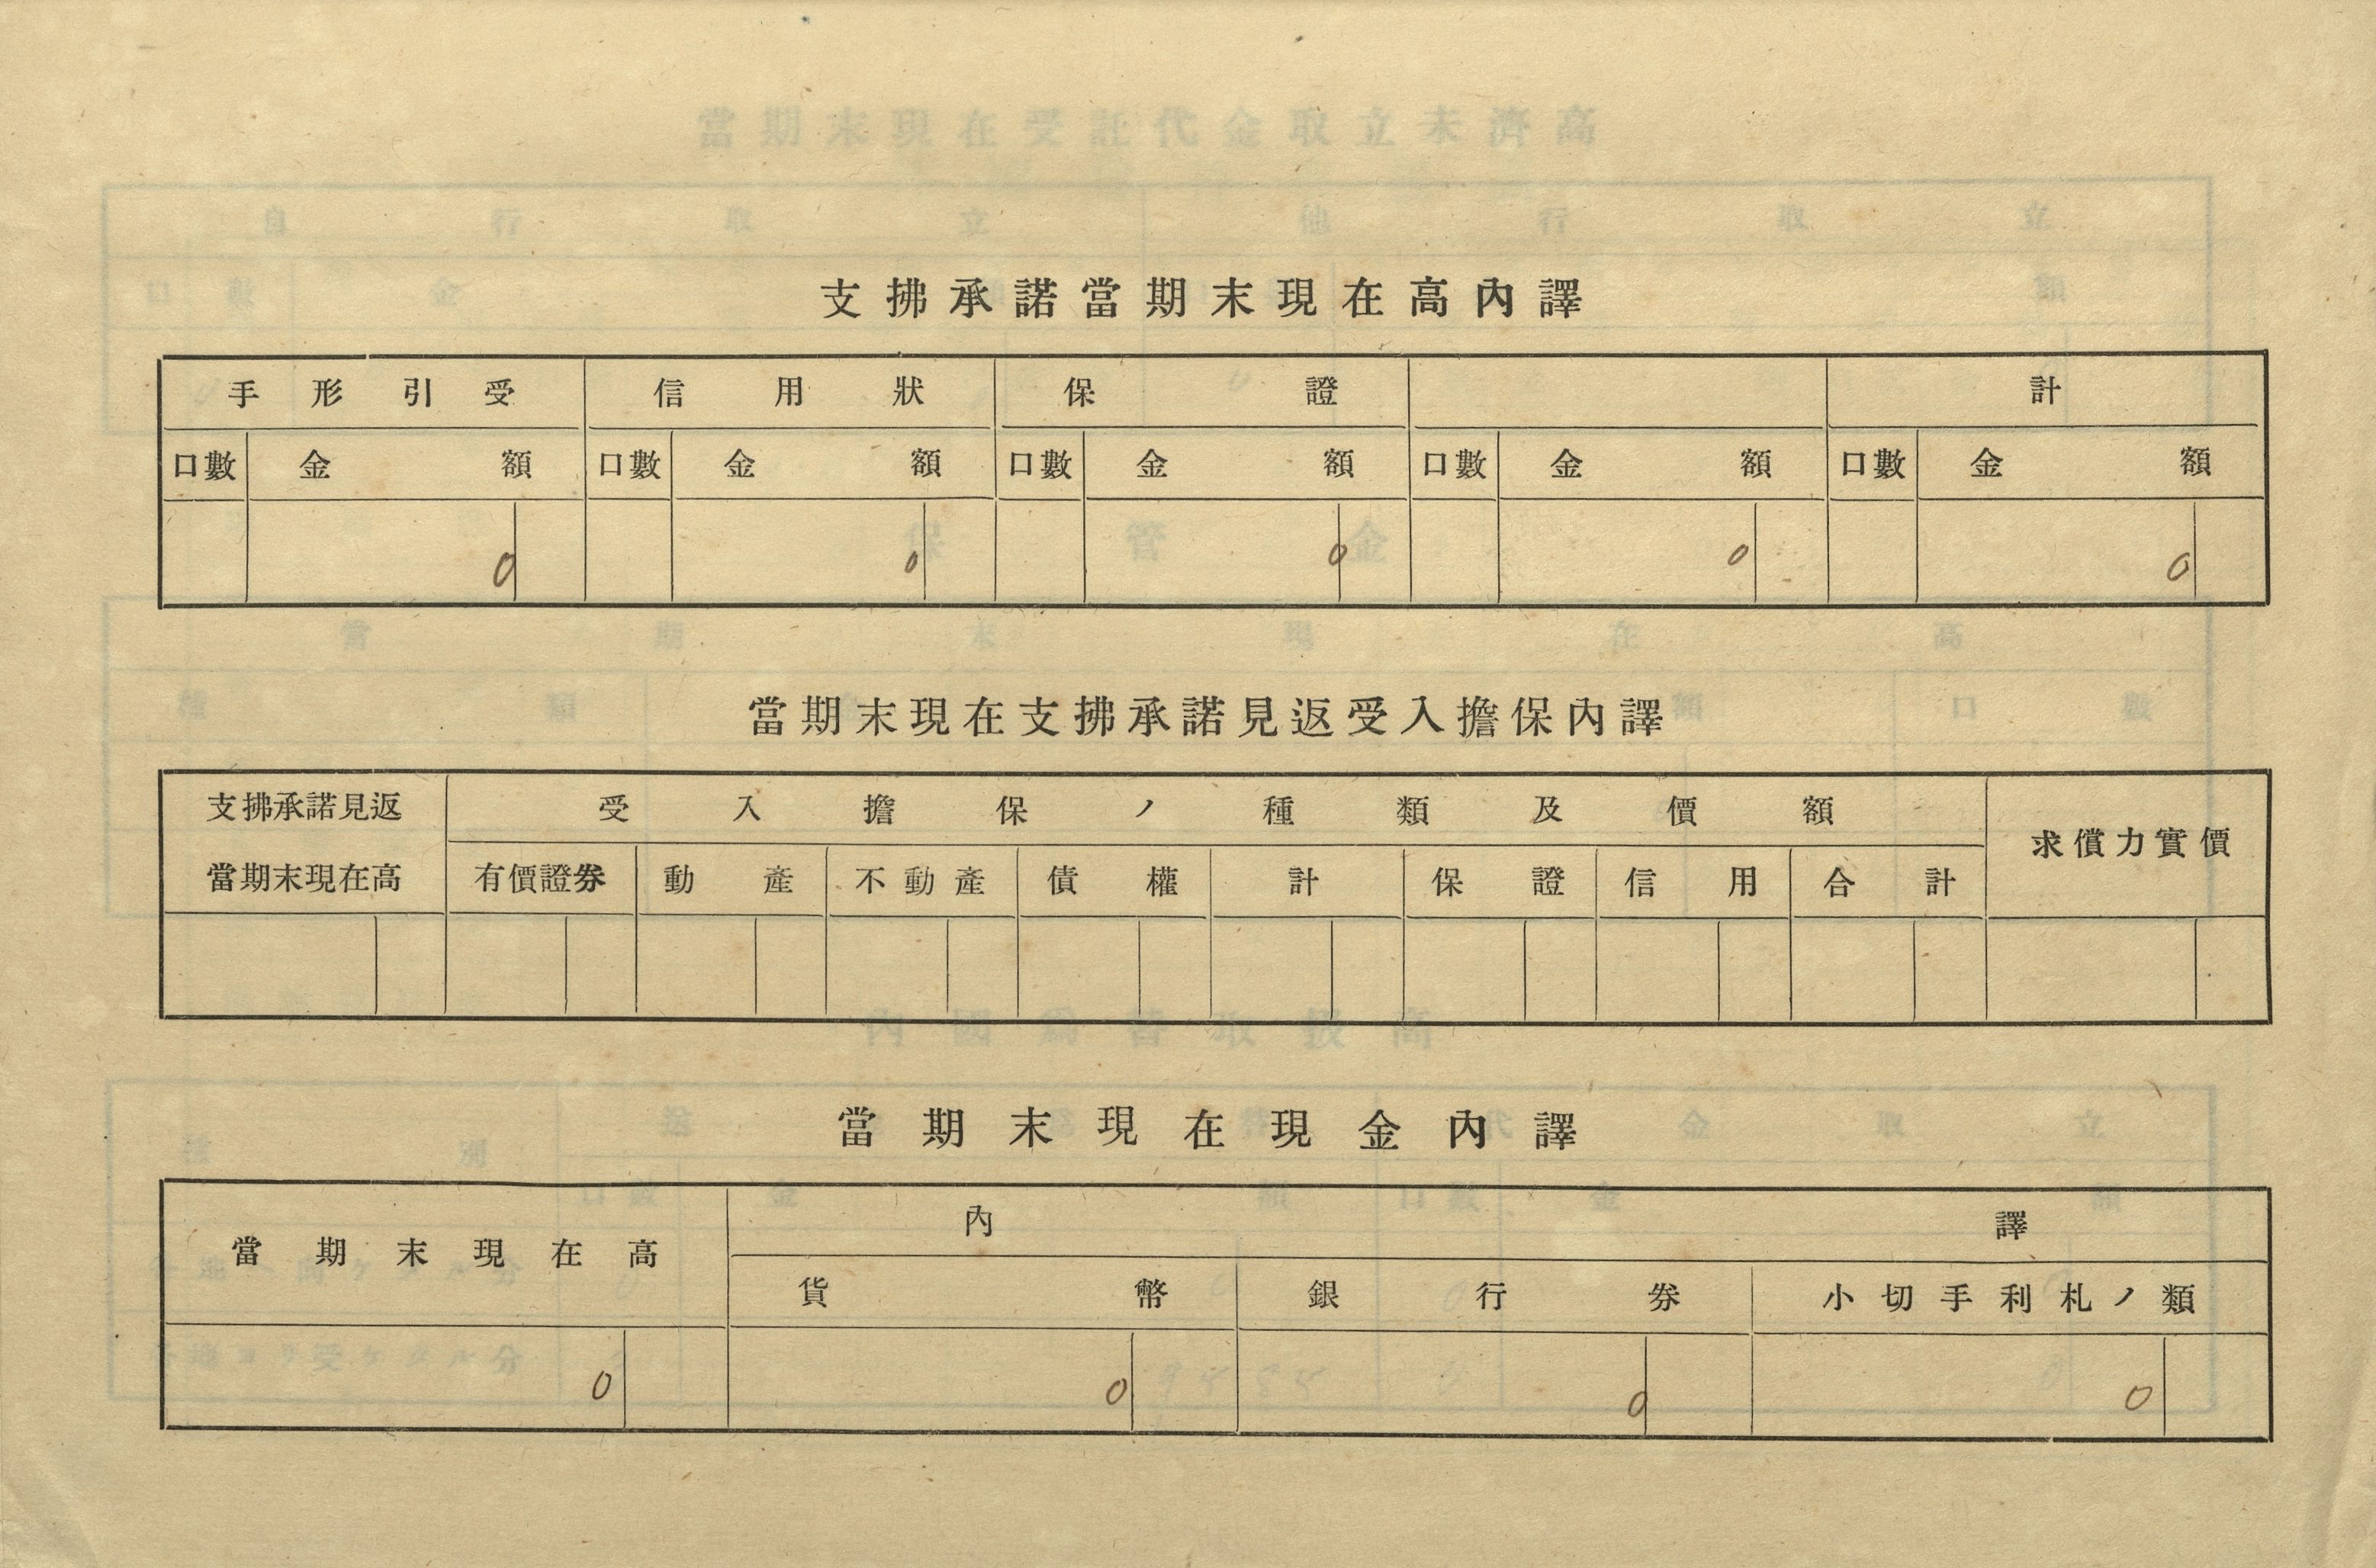 支拂承諾當期末現在高內譯
手形引受 信用狀 保證 計
口數 金額 口數 金額 口數 金額 口數 金額 口數 金額
0 0 0 0 0
當期末現在支拂承諾見返受入擔保內譯
支拂承諾見返 受入擔保ノ種類及價額 求償力實價
當期末現在高 有價證券 動產 不動產 債權 計 保證 信用 合計
當期末現在現金內譯
當期末現在高 內譯
貨幣 銀行券 小切手利札ノ類
0 0 0 0